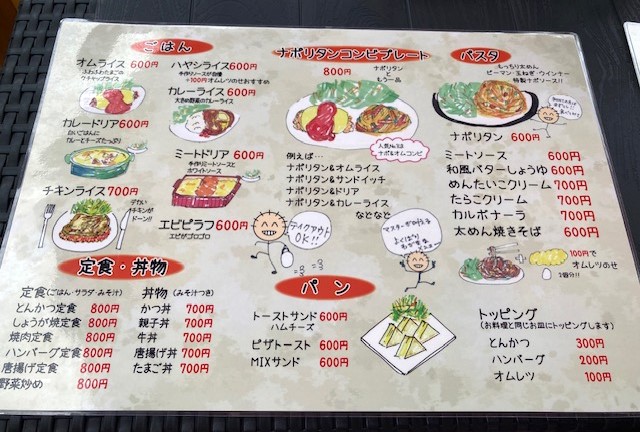 ごはん
オムライス 600円
ふわふわたまごの
ケチャップライス
カレードリア 600円
白いごはんに
カレーとチーズたっぷり
チキンライス 700円
デカい
チキンが
ドーン!!
ハヤシライス 600円
手作りソースが自慢
+100円オムレツのせおすすめ
カレーライス 600円
大きめ野菜のカレーライス
ミートドリア 600円
手作りミートソースと
ホワイトソース
エビピラフ 600円
エビがゴロゴロ
テイクアウト
OK!!
ナポリタンコンビプレート
800円
ナポリタン
と
もう一品
人気No.1は
ナポ&オムコンビ
例えば…
ナポリタン&オムライス
ナポリタン&サンドイッチ
ナポリタン&ドリア
ナポリタン&カレーライス
などなど
パスタ
もっちり太めん
ピーマン・玉ねぎ・ウインナー
特製ナポソース!!
ナポリタン 600円
ミートソース 600円
和風バターしょうゆ 600円
めんたいこクリーム 700円
たらこクリーム 700円
カルボナーラ 700円
太めん焼きそば 600円
100円で
オムレツのせ
定食・丼物
定食(ごはん・サラダ・みそ汁)
とんかつ定食 800円
しょうが焼定食 800円
焼肉定食 800円
ハンバーグ定食 800円
唐揚げ定食 800円
野菜炒め 800円
丼物(みそ汁つき)
かつ丼 700円
親子丼 700円
牛丼 700円
唐揚げ丼 700円
たまご丼 700円
パン
トーストサンド 600円
ハムチーズ
ピザトースト 600円
MIXサンド 600円
トッピング
(お料理と同じお皿にトッピングします)
とんかつ 300円
ハンバーグ 200円
オムレツ 100円